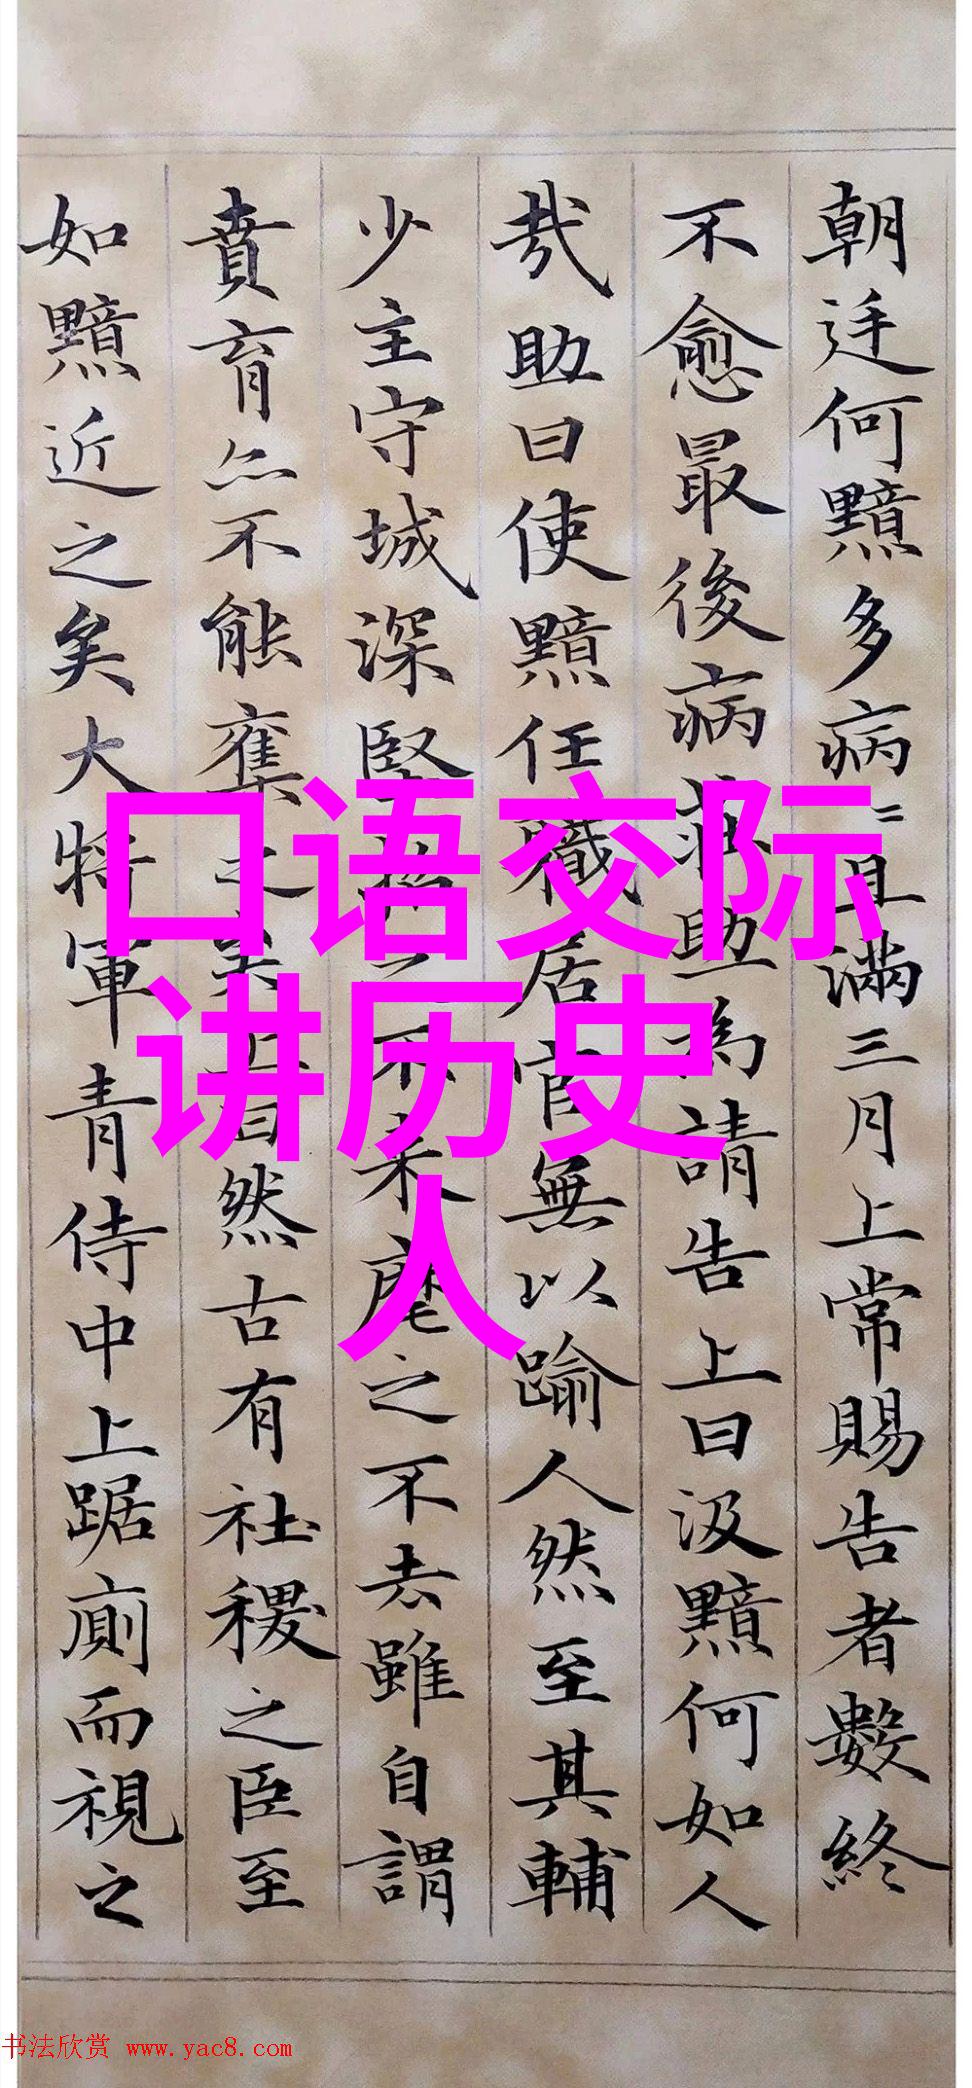 朝廷何黯多病〻且滿三月上常賜告者數終
不愈最後病莊助為請告上曰汲黯何如人
哉助曰使黯任職居官無以踰人然至其輔
少主守城深堅招之不来麾之不去雖自謂
賁育亦不能奪之矣上曰然古有社稷之臣至
如黯近之矣大將軍青侍中上踞廁而視之
口语交际
讲历史
人
书法欣赏 www.yac8.com